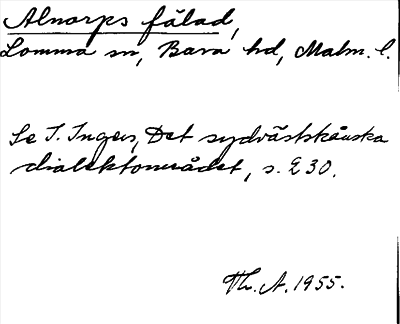 Alnarps fälad,
Lomma sn, Bara hd, Malm. l.
Se I. Ingers, Det sydvästskånska
dialektområdet, s. 230.
Th. A. 1955.